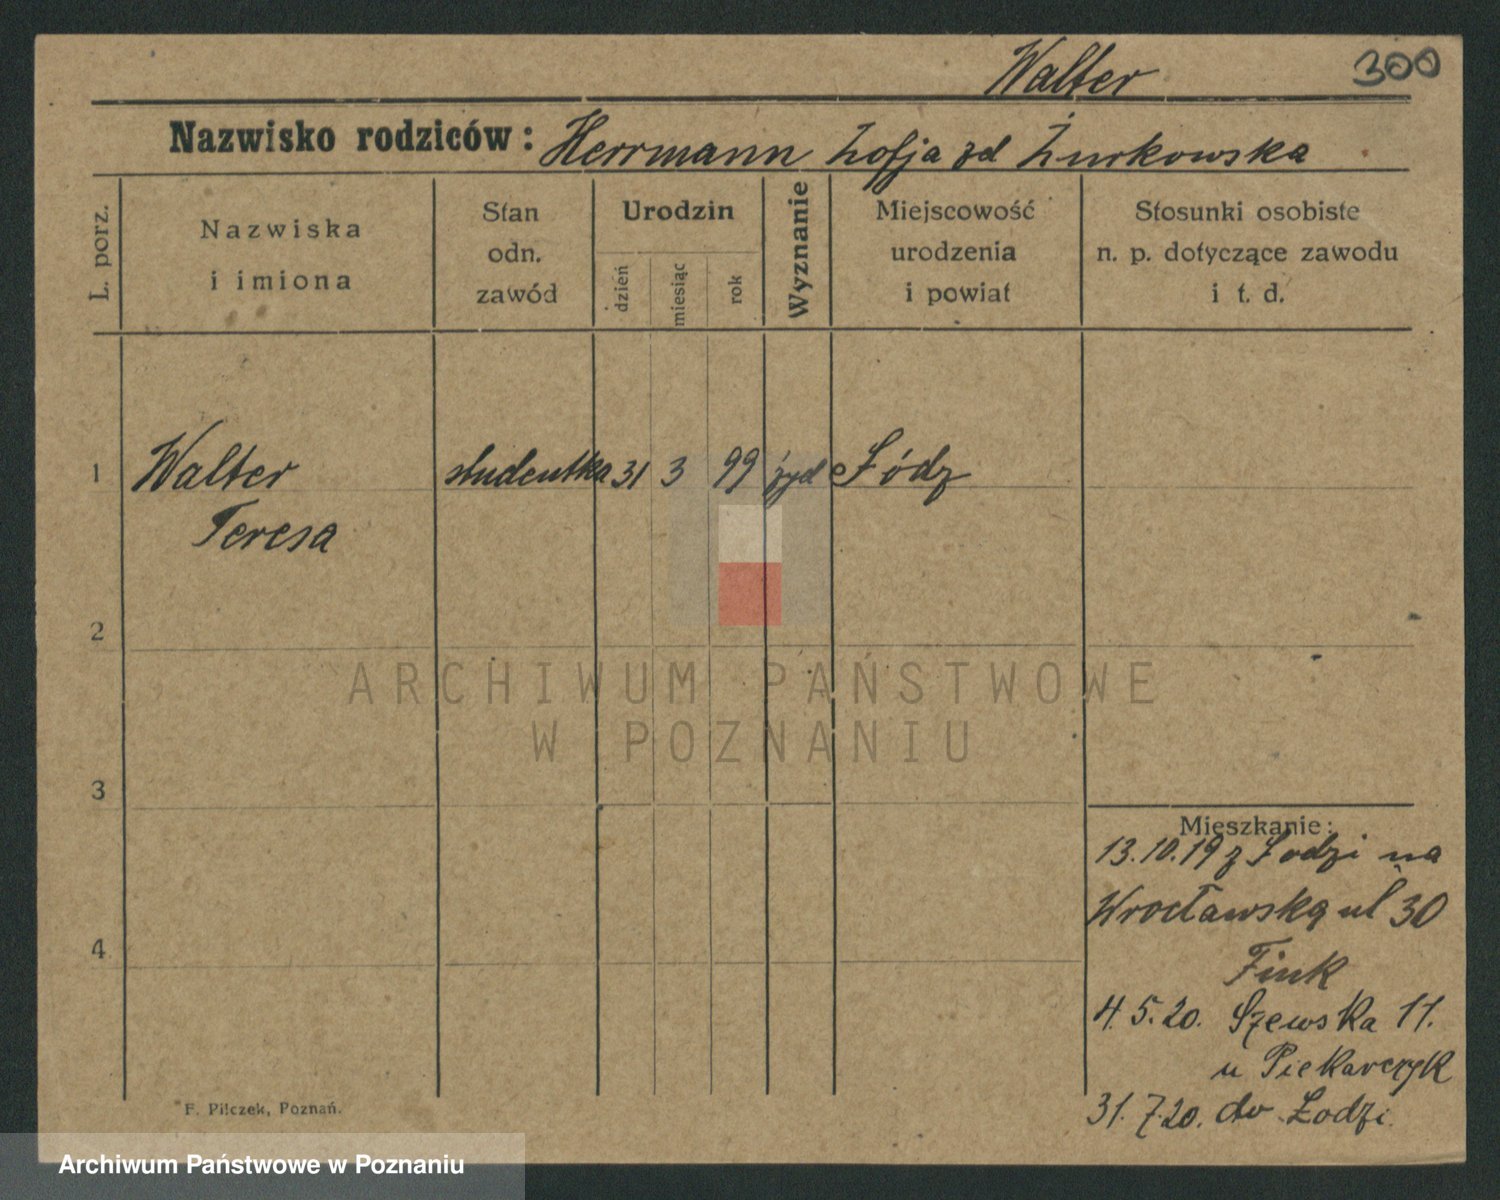 Walter
300
Nazwisko rodziców: Herrmann Zofja zd Żurkowska
L. porz.
Nazwiska
i imiona
Stan
odn.
zawód
Urodzin
dzień
miesiąc
rok
Wyznanie
Miejscowość
urodzenia
i powiat
Stosunki osobiste
n. p. dotyczące zawodu
i t. d.
1 Walter studentka 31 3 99 żyd Łódz
Teresa
2
ARCHIWUM PAŃSTWOWE
W POZNANIU
3
Mieszkanie:
13.10.19 z Łodzi na
Wrocławską ul 30
4
Fink
4.5.20. Szewska 11.
u Piekarczyk
31.7.20. do Łodzi.
F. Pilczek, Poznań.
Archiwum Państwowe w Poznaniu